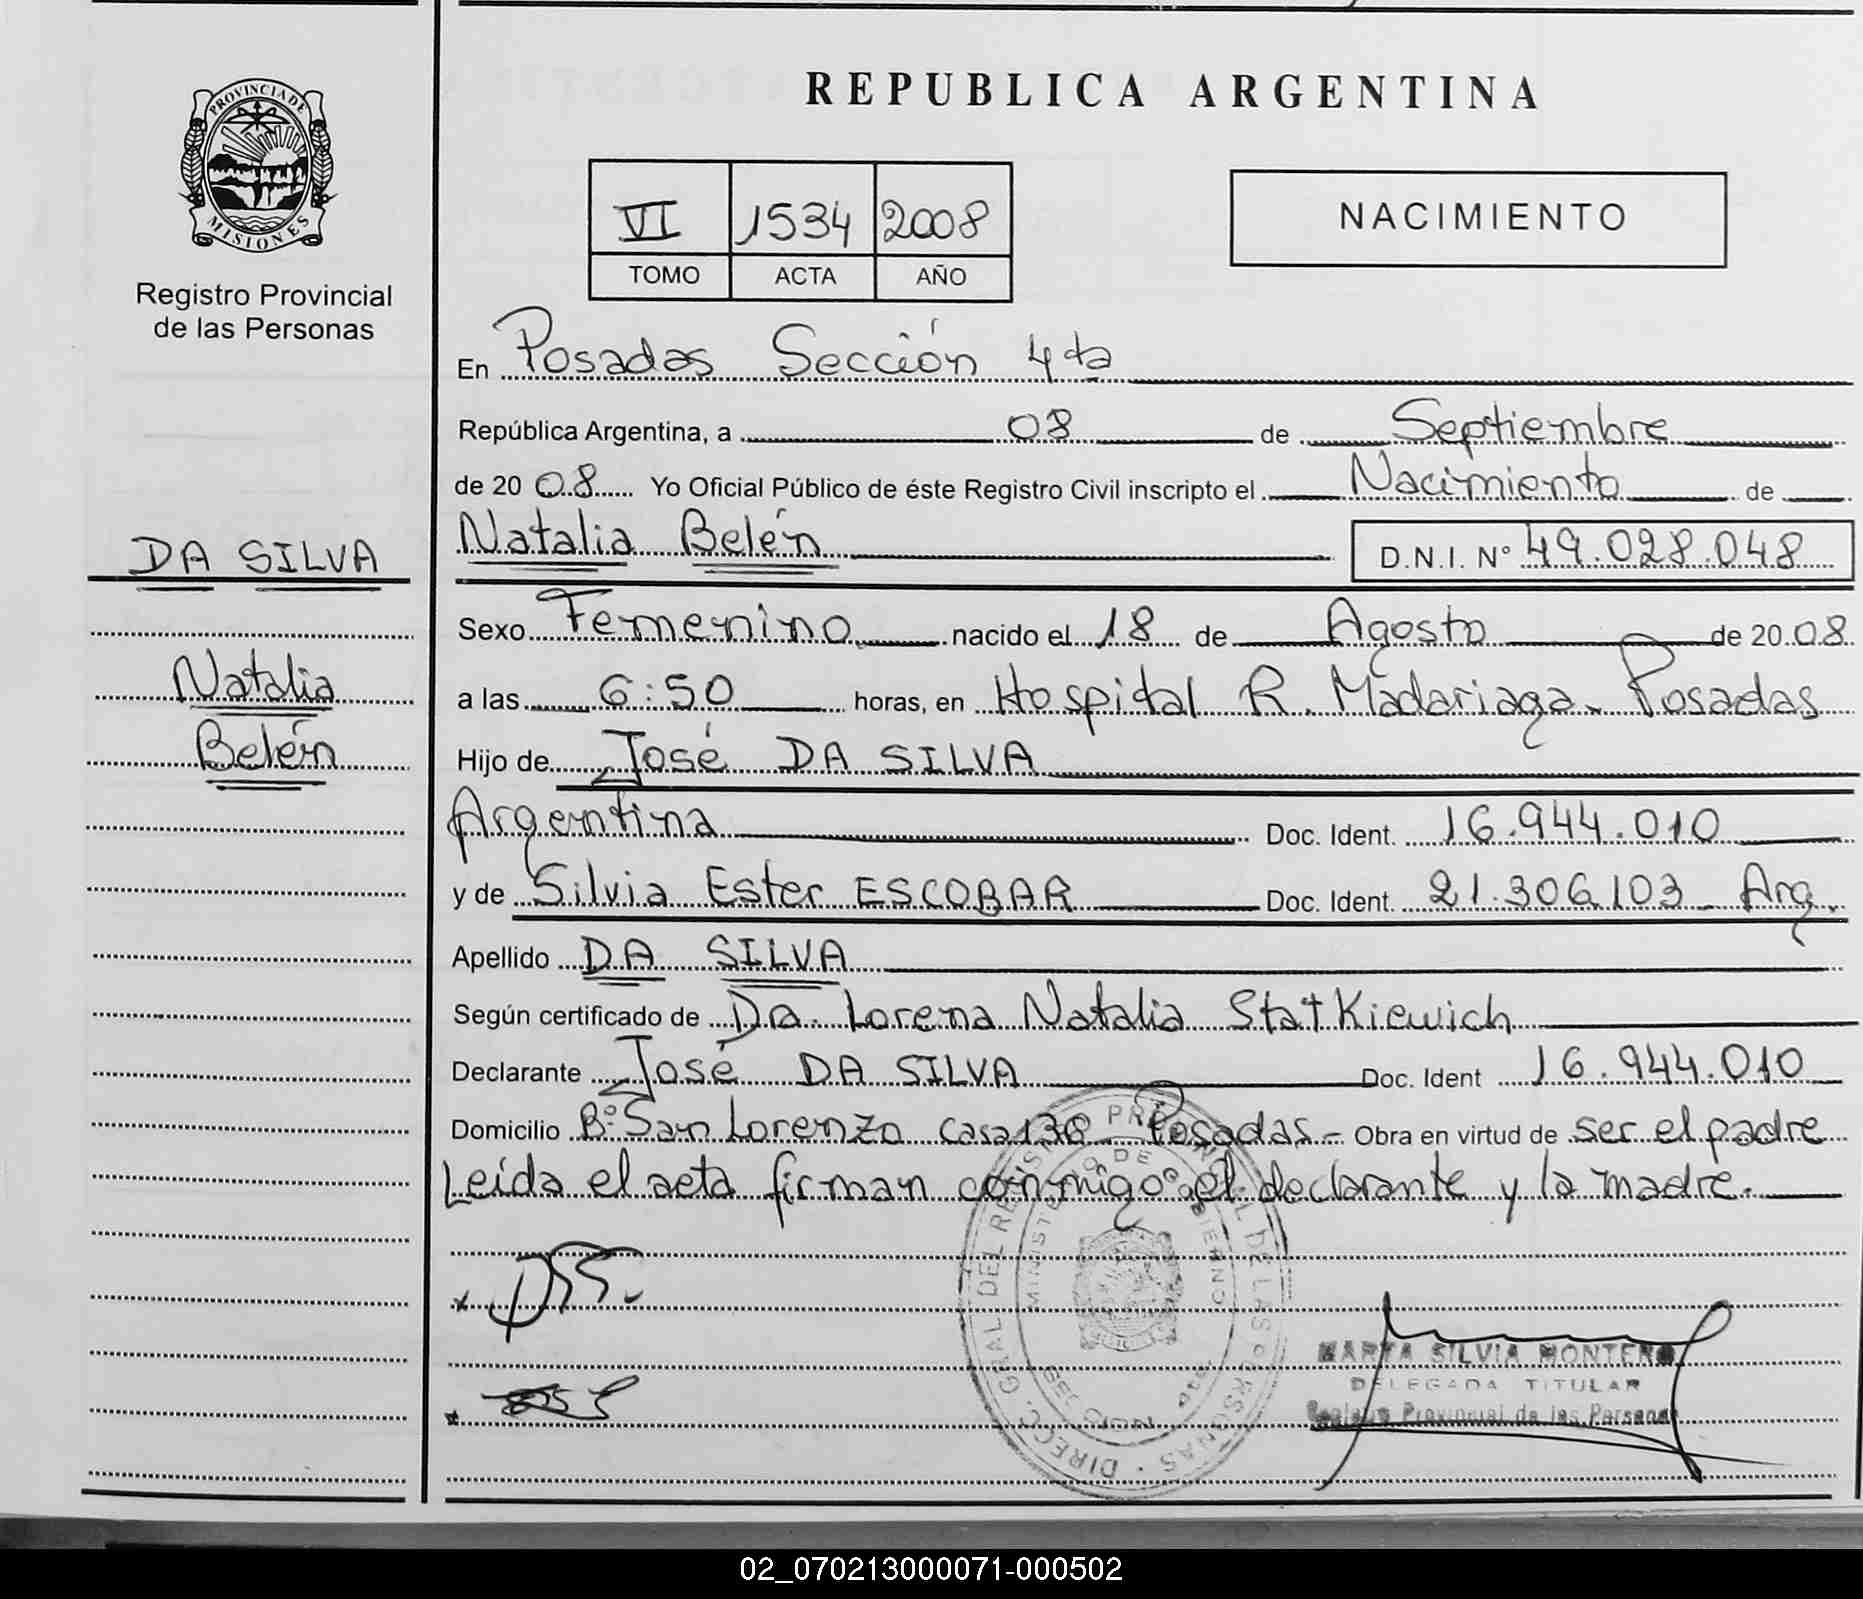 PROVINCIA DE
MISIONES
Registro Provincial
de las Personas
DA SILVA
Natalia
Belén
REPUBLICA ARGENTINA
VI 1534 2008
TOMO ACTA AÑO
NACIMIENTO
En Posadas Sección 4ta
República Argentina, a 08 de Septiembre
de 20 08 Yo Oficial Público de éste Registro Civil inscripto el Nacimiento de
Natalia Belén D.N.I. Nº 49.028.048
Sexo Femenino nacido el 18 de Agosto de 20 08
a las 6:50 horas, en Hospital R. Madariaga. Posadas
Hijo de José DA SILVA
Argentina Doc. Ident. 16.944.010
y de Silvia Ester ESCOBAR Doc. Ident. 21.306.103 Arg.
Apellido DA SILVA
Según certificado de Dra. Lorena Natalia StatKiewich
Declarante José DA SILVA Doc. Ident 16.944.010
Domicilio Bº San Lorenzo casa 136 Posadas.- Obra en virtud de ser el padre
Leída el acta firman conmigo el declarante y la madre.
DIREC. GRAL. DEL REGISTRO PROVINCIAL DE LAS PERSONAS
MINISTERIO DE GOBIERNO
MARTA SILVIA MONTERO
DELEGADA TITULAR
Registro Provincial de las Personas
02_070213000071-000502